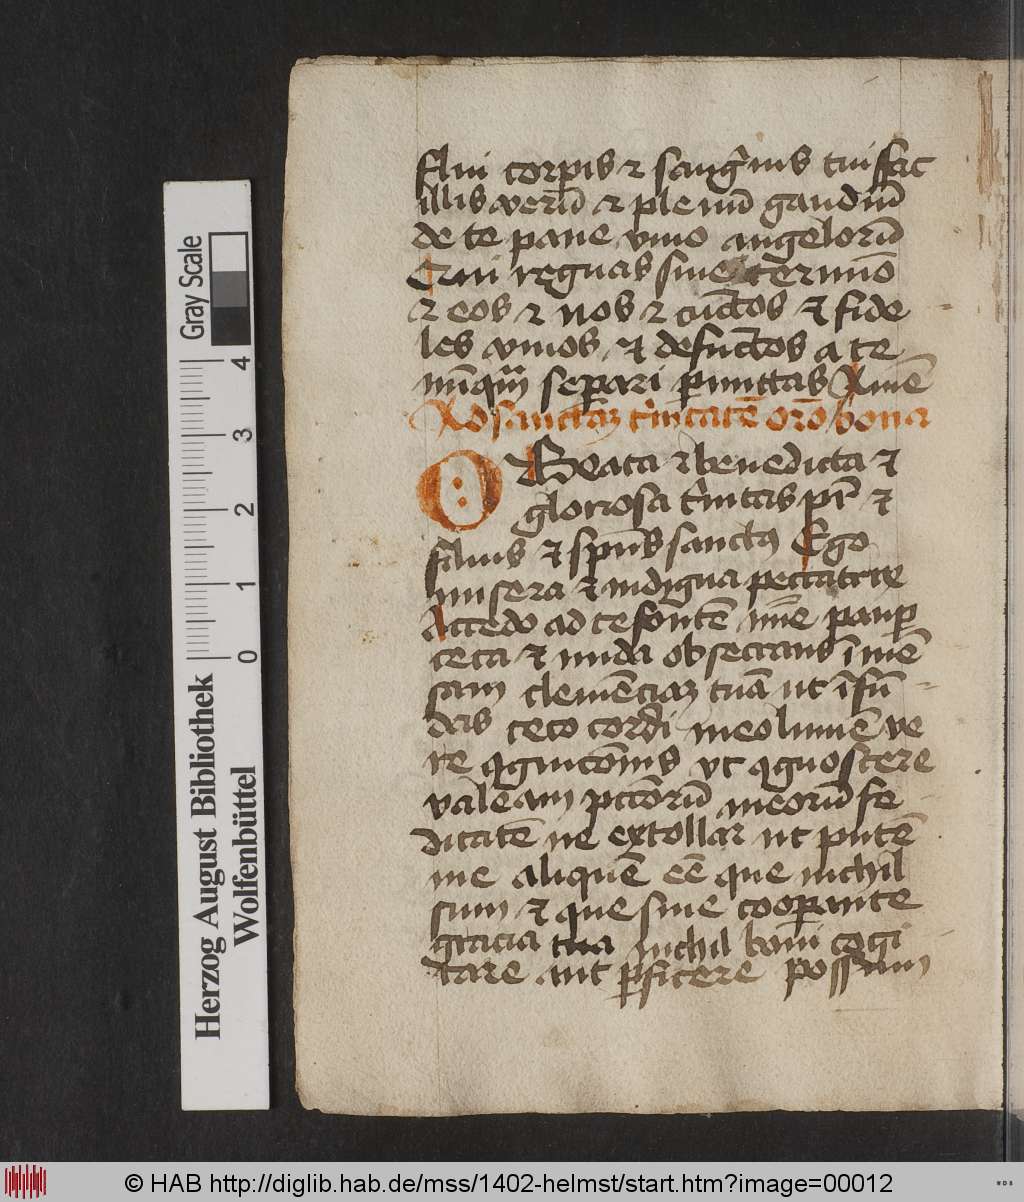 flui corpis et sang'nis tui fac
illis verū et plenū gaudiū
de te pane vivo angelorū
Qui regnas sine termino
et eos et nos et cūctos et fide
les vivos et defūctos a te
nūq̄m separi permittas Amē
Ad sanctam t'initatē orō bona
O Beata et benedicta et
gloriosa t'initas pr̄ et
filius et sp̄us sanctus Ego
misera et indigna peccatrix
Accedo ad te fontē mīe paup
ceca et nuda obsecrans īmē
sam clemēciam tuā ut īfū
das ceco cordi meo lumē ve
re cognicōnis ut cognoscere
valeam pccōrū meorū fe
ditatē ne extollar ut putē
me aliquē eē que nichil
sum et que sine cooperante
gracia tua nichil boni cogi
tare aut perficere possum
Gray Scale
4
3
2
1
0
Herzog August Bibliothek
Wolfenbüttel
© HAB http://diglib.hab.de/mss/1402-helmst/start.htm?image=00012